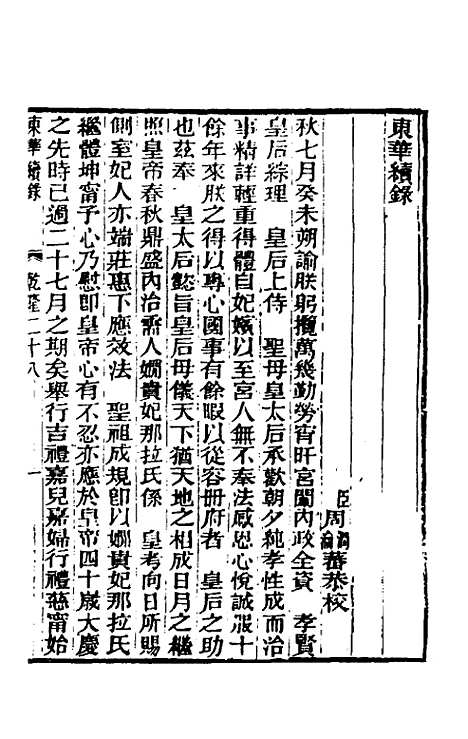 東華續錄
臣周潤蕃恭校
秋七月癸未朔諭朕躬攬萬幾勤勞宵旰宮闈內政全資　孝賢
皇后綜理　皇后上侍　聖母皇太后承歡朝夕純孝性成而治
事精詳輕重得體自妃嬪以至宮人無不奉法感恩心悅誠服十
餘年來朕之得以專心國事有餘暇以從容册府者　皇后之助
也茲奉　皇太后懿旨皇后母儀天下猶天地之相成日月之繼
照皇帝春秋鼎盛內治需人嫺貴妃那拉氏係　皇考向日所賜
側室妃人亦端莊惠下應效法　聖祖成規卽以嫺貴妃那拉氏
繼體坤甯予心乃慰卽皇帝心有不忍亦應於皇帝四十歲大慶
之先時已過二十七月之期矣舉行吉禮嘉兒嘉婦行禮慈甯始
東華續錄　乾隆二十八　一